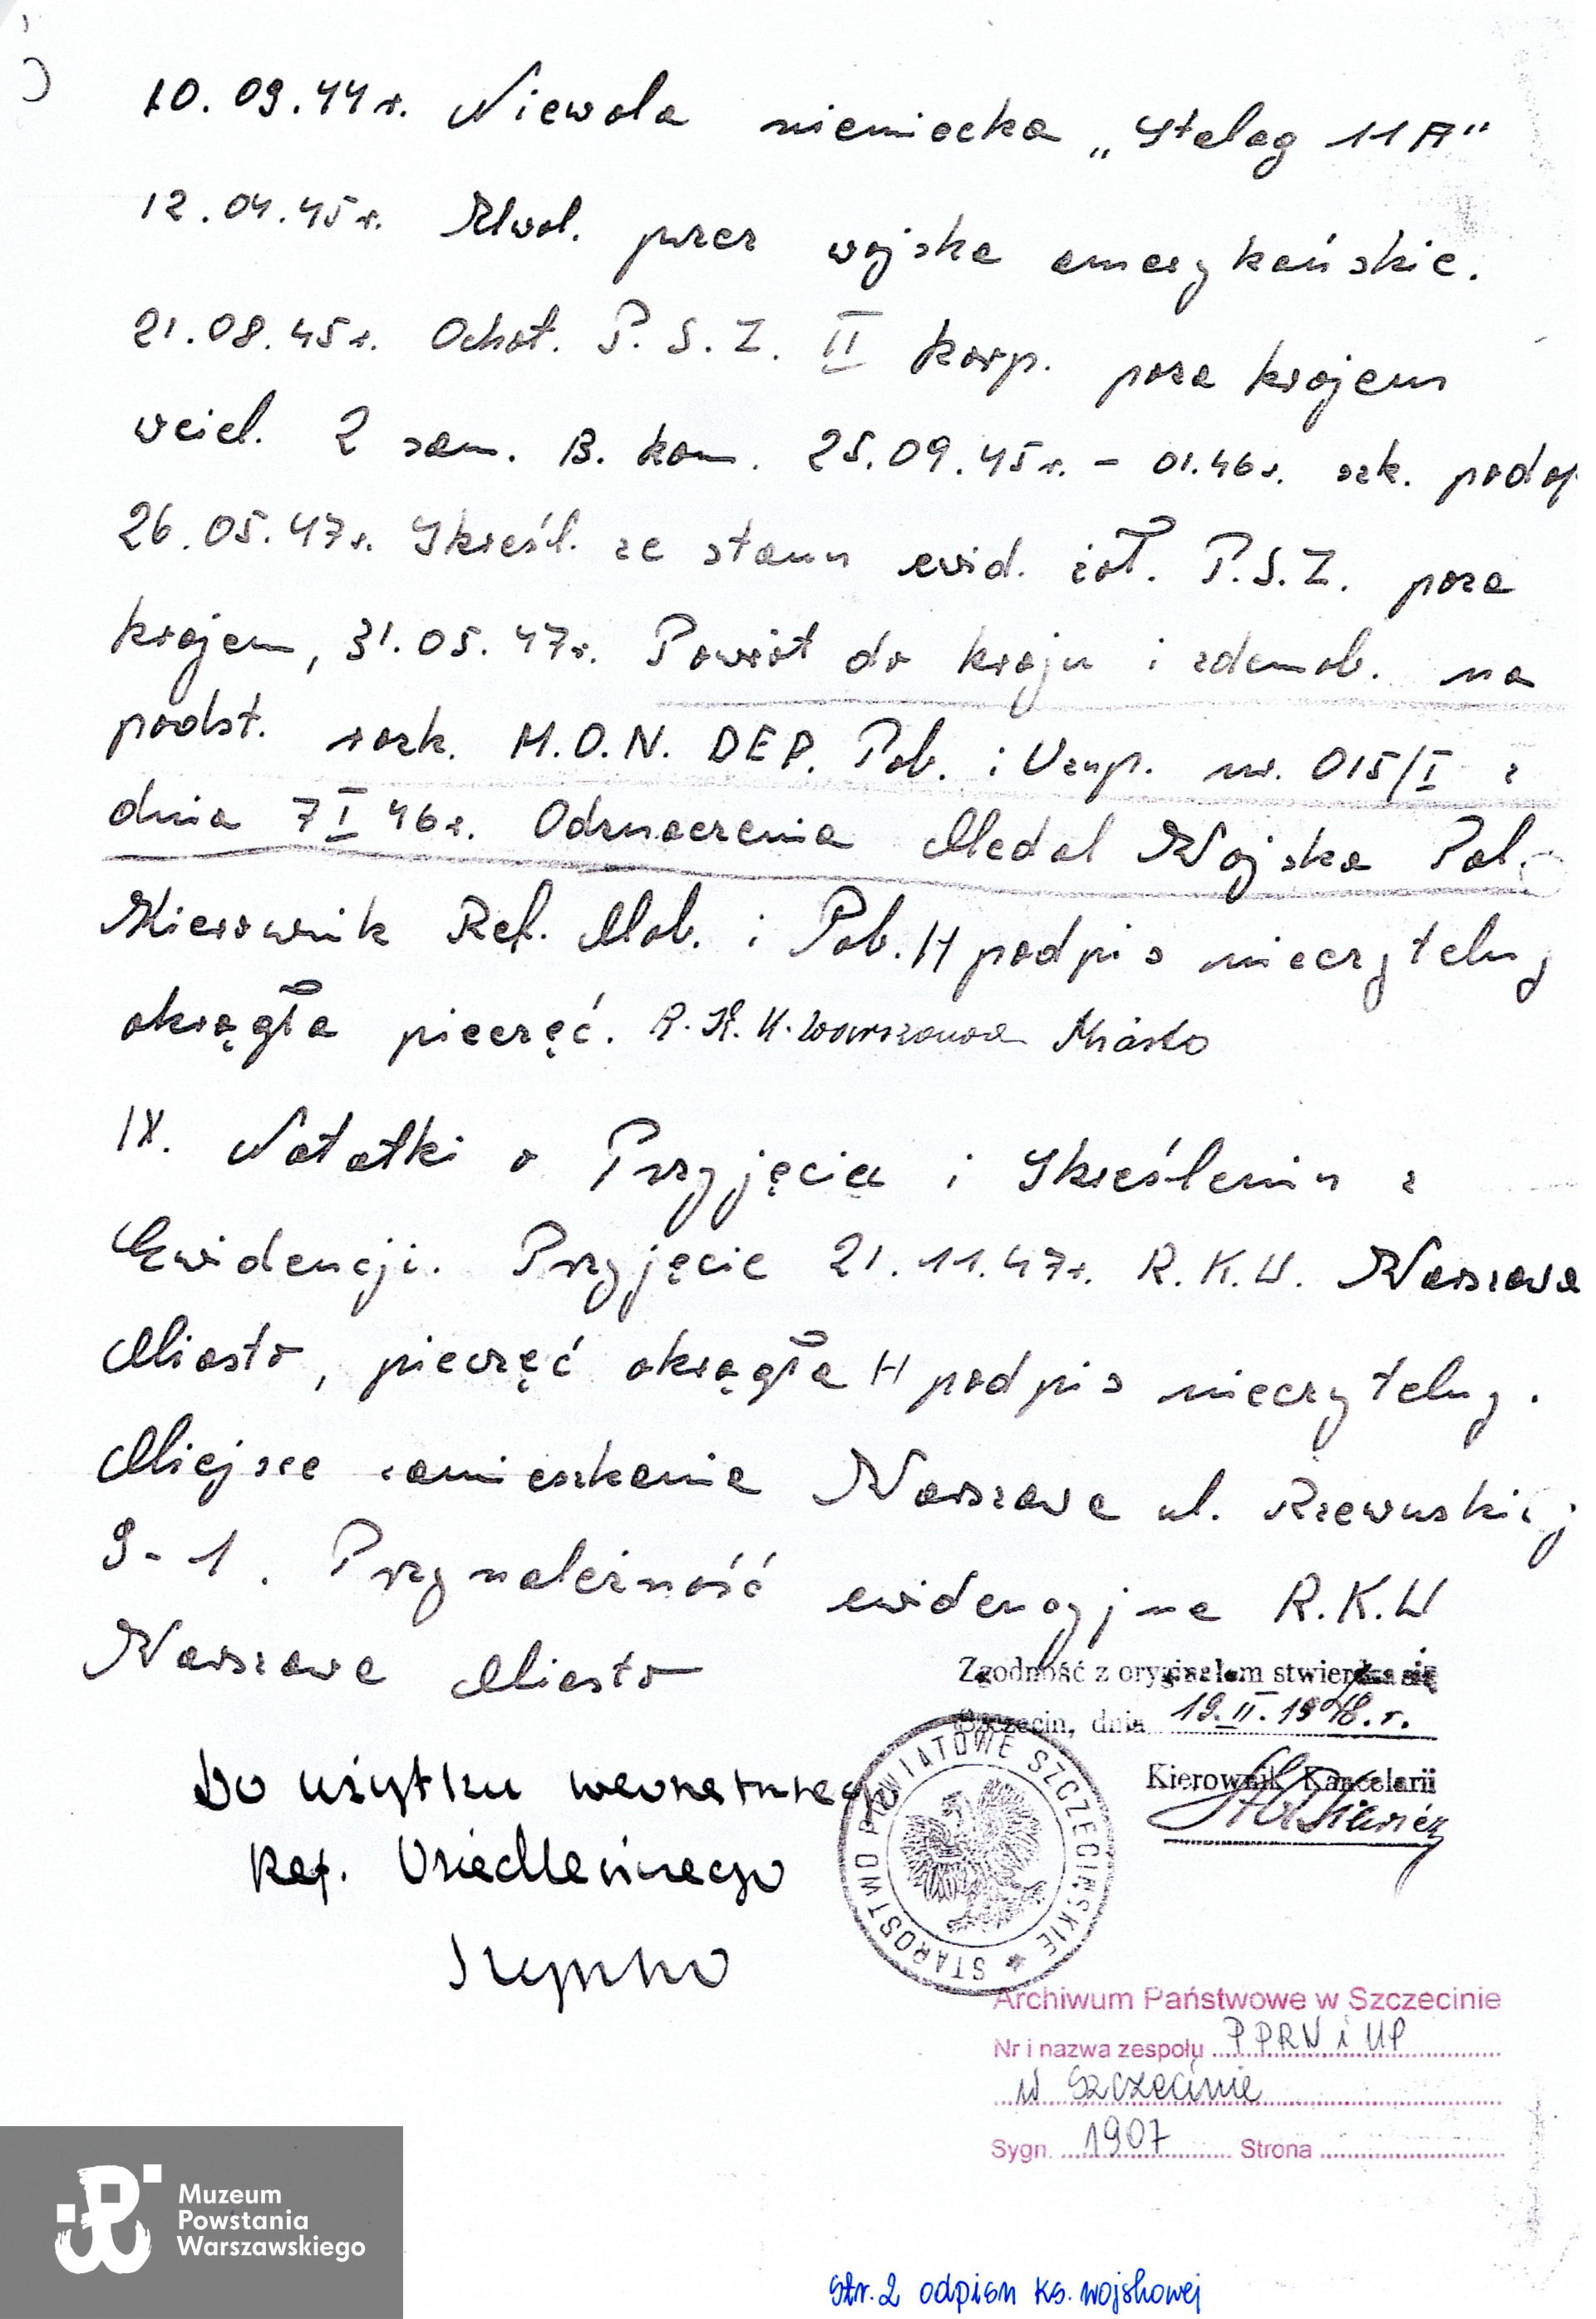 10.09.44r. Niewola niemiecka „Stalag 11A"
12.04.45r. Zwol. przez wojska amerykańskie.
21.08.45r. Ochot. P.S.Z. II korp. poza krajem
wciel. 2 sam. B. kom. 25.09.45r. - 01.46r. szk. podof
26.05.47r. Skreśl. ze stanu ewid. żoł. P.S.Z. poza
krajem, 31.05.47r. Powrót do kraju i zdemob. na
podst. rozk. M.O.N. DEP. Pob. i Uzup. nr. 015/I z
dnia 7 I 46r. Odznaczenia Medal Wojska Pol.
Kierownik Ref. Mob. i Pob. H podpis nieczytelny
okrągła pieczęć. R.K.U. Warszawa Miasto
IX. Notatki o Przyjęciu i Skreśleniu z
Ewidencji. Przyjęcie 21.11.47r. R.K.U. Warszawa
Miasto, pieczęć okrągła H podpis nieczytelny.
Miejsce zamieszkania Warszawa ul. Rzewuskiej
9-1. Przynależność ewidencyjna R.K.U
Warszawa Miasto
Zgodność z oryginałem stwierdza się
Szczecin, dnia 19.II.1948.r.
Kierownik Kancelarii
STAROSTWO POWIATOWE SZCZECIŃSKIE
Do użytku wewnętrznego
Ref. Osiedleńczego
Archiwum Państwowe w Szczecinie
Nr i nazwa zespołu PPRN i UP
w Szczecinie
Sygn. 1907 Strona
Muzeum
Powstania
Warszawskiego
str. 2 odpisu ks. wojskowej